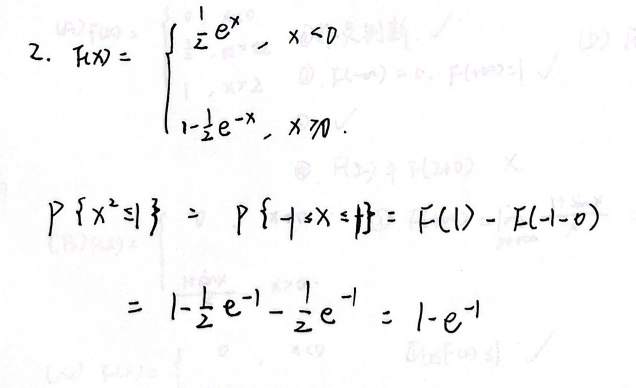 2. F(x) = { 1/2 e^x , x<0
1-1/2 e^-x , x≥0 .
P{x²≤1} = P{-1≤X≤1} = F(1) - F(-1-0)
= 1-1/2 e^-1 - 1/2 e^-1 = 1-e^-1